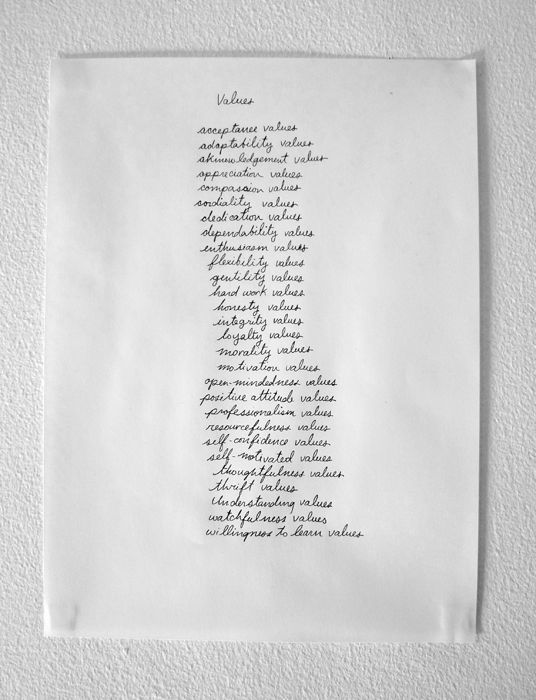 Values
acceptance values
adaptability values
aknowledgement values
appreciation values
compassion values
cordiality values
dedication values
dependability values
enthusiasm values
flexibility values
gentility values
hard work values
honesty values
integrity values
loyalty values
morality values
motivation values
open-mindedness values
positive attitude values
professionalism values
resourcefulness values
self-confidence values
self-motivated values
thoughtfulness values
thrift values
Understanding values
watchfulness values
willingness to learn values